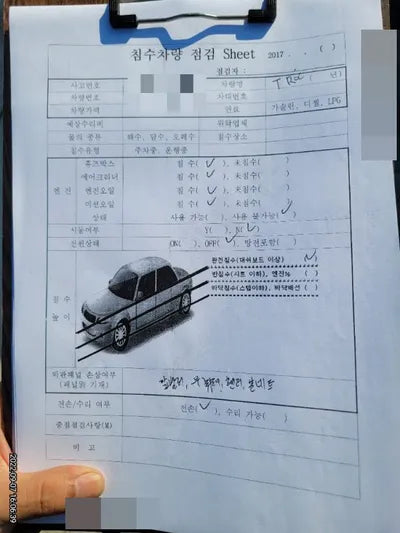 침수차량 점검 Sheet 2017 . . ( )
점검자 :
사고번호 차량명 ( 년)
차량번호 차대번호
차량가격 연료 가솔린, 디젤, LPG
예상수리비 위탁업체
물의 종류 해수, 담수, 오폐수 침수장소
침수유형 주차중, 운행중
엔 진
휴즈박스 침 수( ✓ ), 미침수( )
에어크리너 침 수( ✓ ), 미침수( )
엔진오일 침 수( ✓ ), 미침수( )
미션오일 침 수( ✓ ), 미침수( )
상태 사용 가능( ), 사용 불가능( ✓ )
시동여부 Y( ), N( ✓ )
전원상태 ON( ), OFF( ✓ ), 방전포함( )
침 수 높 이
완전침수(대쉬보드 이상) ( ✓ )
반침수(시트 이하), 엔진% ( )
바닥침수(스텝이하), 바닥배선 ( )
외관패널 손상여부
(패널別 기재)
전손/수리 여부 전손( ✓ ), 수리 가능( )
중점점검사항(M)
비 고
2022/09/07 16:06:39